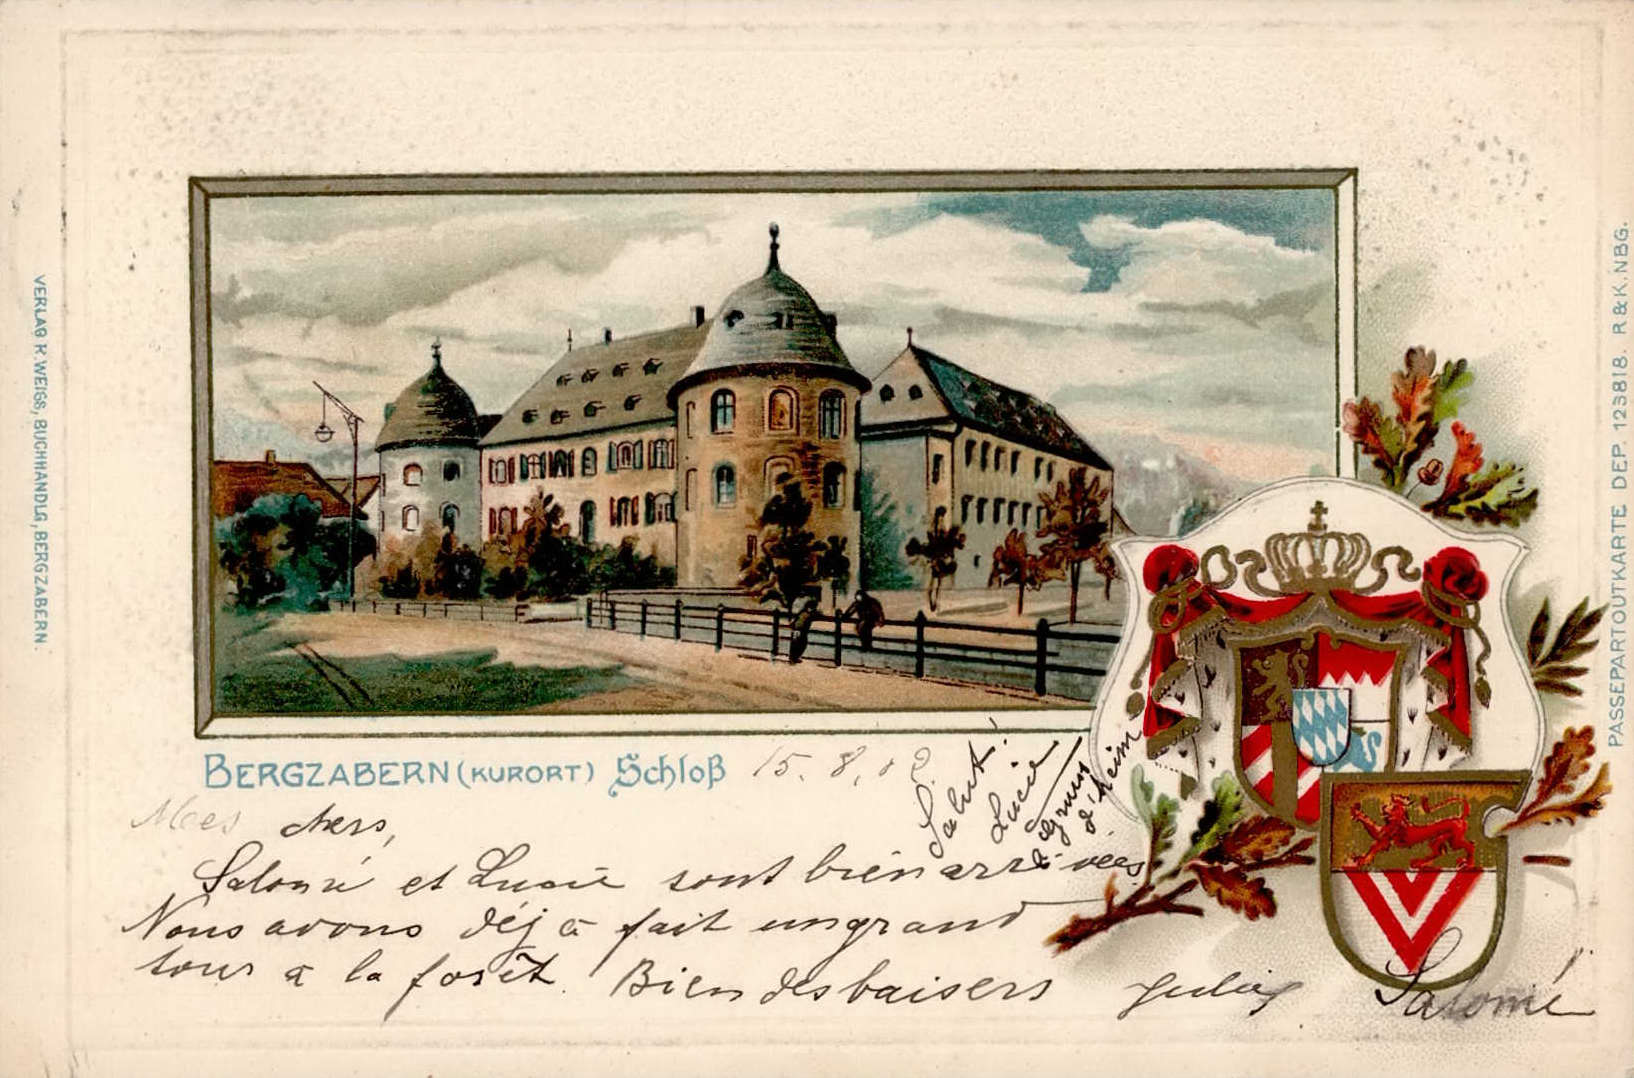 VERLAG R. WEISS, BUCHHANDLG, BERGZABERN.
PASSEPARTOUTKARTE DEP. 123818. R & K. NBG.
BERGZABERN (KURORT) Schloß 15. 8. 02
Salut!
Lucie
Mes chers,
Salomé et Lucie sont bien arrivées
Nous avons déjà fait un grand
tour à la forêt. Bien des baisers
Salomé